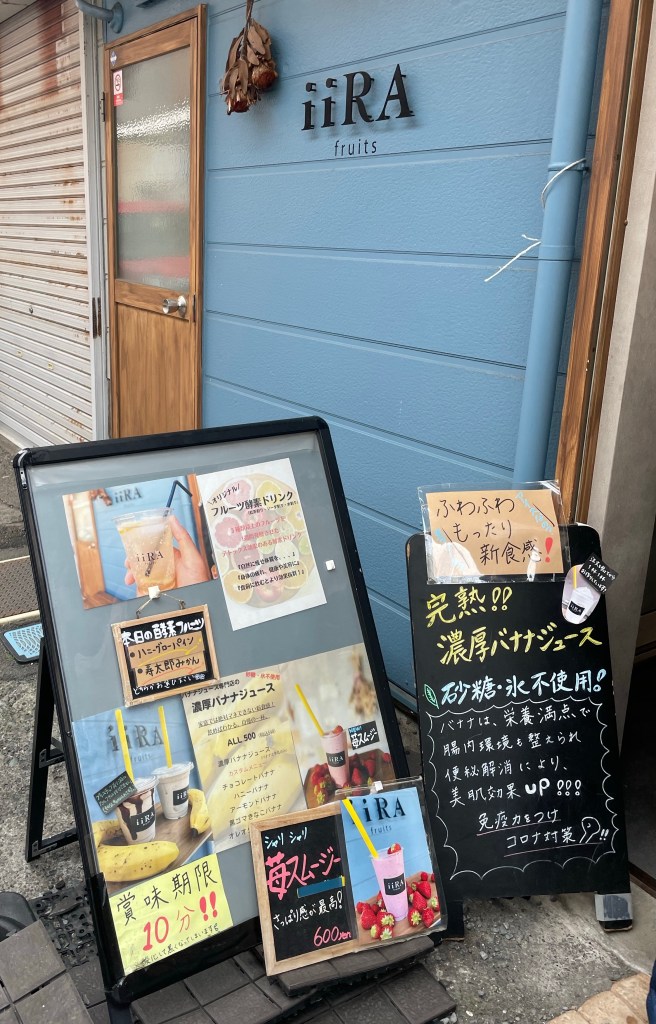 iiRA
fruits
iiRA
iiRA
オリジナル
フルーツ酵素ドリンク
本日の酵素フルーツ
・ハニーグローパイン
・寿太郎みかん
バナナジュース専門店の
濃厚バナナジュース
ALL 500
濃厚バナナジュース
チョコレートバナナ
ハニーバナナ
アーモンドバナナ
黒ゴマきなこバナナ
iiRA
iiRA
iiRA
苺スムージー
iiRA
賞味期限
10分!!
シャリシャリ
苺スムージー
さっぱり感が最高!
600yen
iiRA
fruits
iiRA
ふわふわ
もったり
新食感!
完熟!!
濃厚バナナジュース
砂糖・氷不使用!
バナナは、栄養満点で
腸内環境も整えられ
便秘解消により、
美肌効果UP!!!
免疫力をつけ
コロナ対策!!